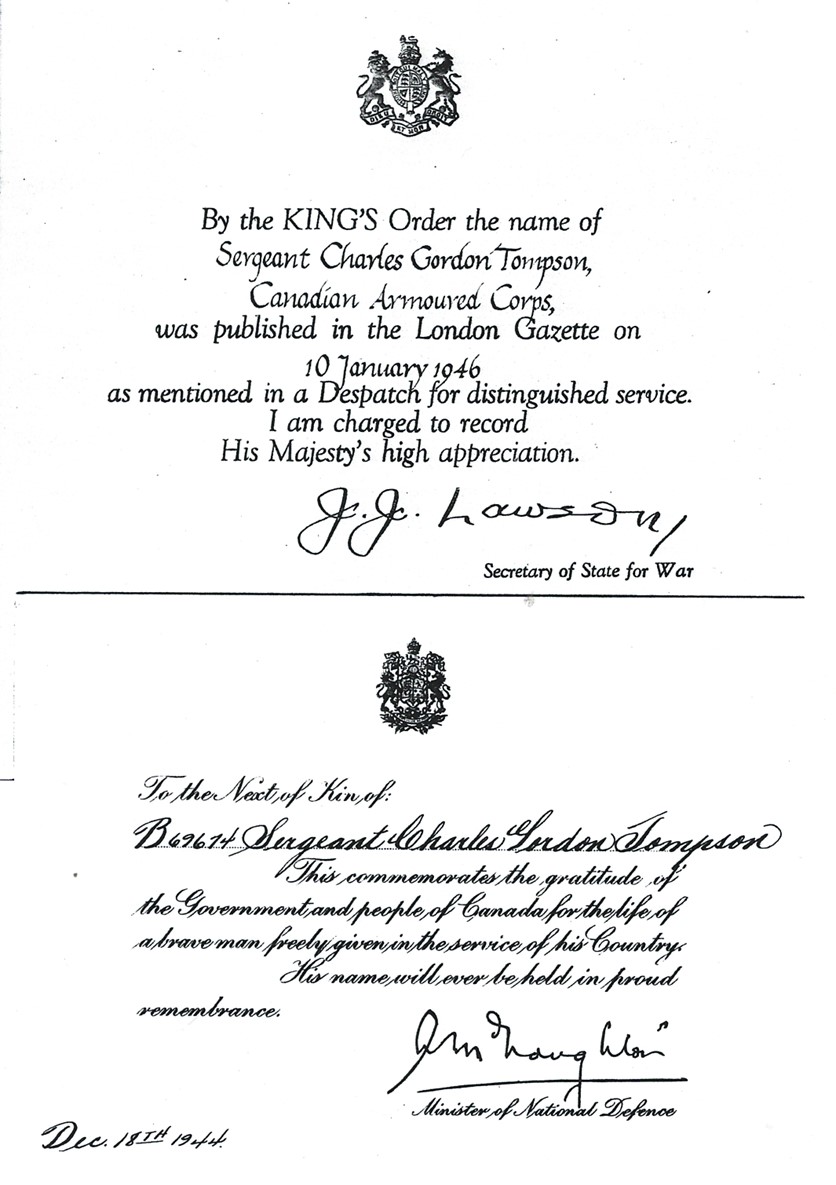 By the KING'S Order the name of
Sergeant Charles Gordon Tompson,
Canadian Armoured Corps,
was published in the London Gazette on
10 January 1946
as mentioned in a Despatch for distinguished service.
I am charged to record
His Majesty's high appreciation.
J. J. Lawson
Secretary of State for War
To the Next of Kin of:
B69674 Sergeant Charles Gordon Tompson
This commemorates the gratitude of
the Government and people of Canada for the life of
a brave man freely given in the service of his Country.
His name will ever be held in proud
remembrance.
Minister of National Defence
Dec. 18TH 1944.